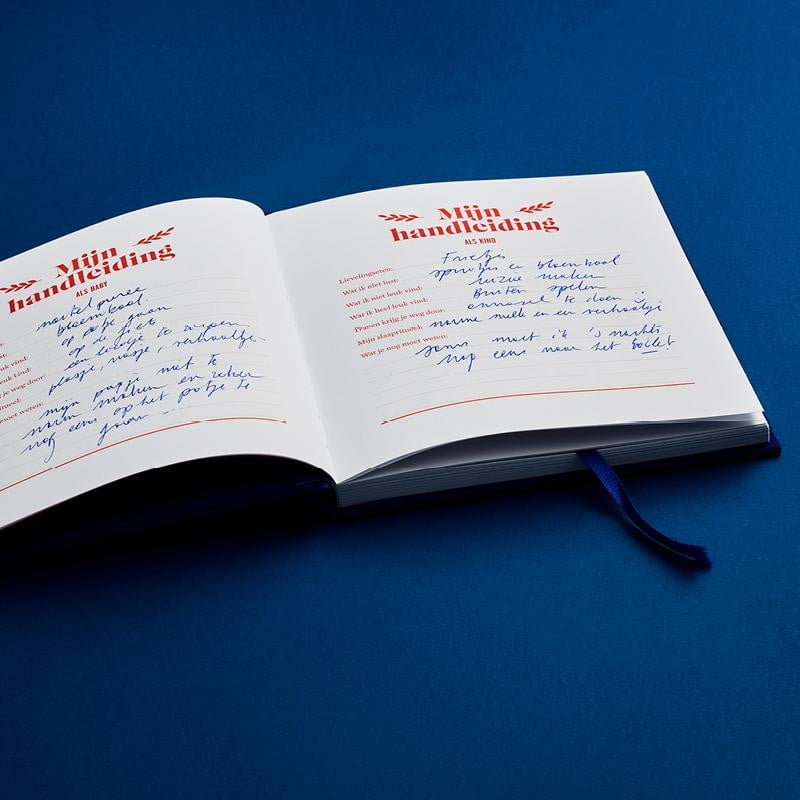 Mijn
handleiding
ALS BABY
wortel puree
bloemkool.
op potje gaan
op de fiets
een liedje te zingen
leuk vind:
plasje, visje, verhaaltje
je weg door:
mijn papje niet te
moet weten:
warm maken en zeker
nog eens op het potje te
gaan ...
Mijn
handleiding
ALS KIND
Lievelingseten: Frietjes
Wat ik niet lust: spruitjes en bloemkool
Wat ik niet leuk vind: ruzie maken
Wat ik heel leuk vind: Buiten spelen
Tranen krijg je weg door: onnozel te doen
Mijn slaapritueel: warme melk en een verhaaltje
Wat je nog moet weten: soms moet ik 's nachts
nog eens naar het toilet!